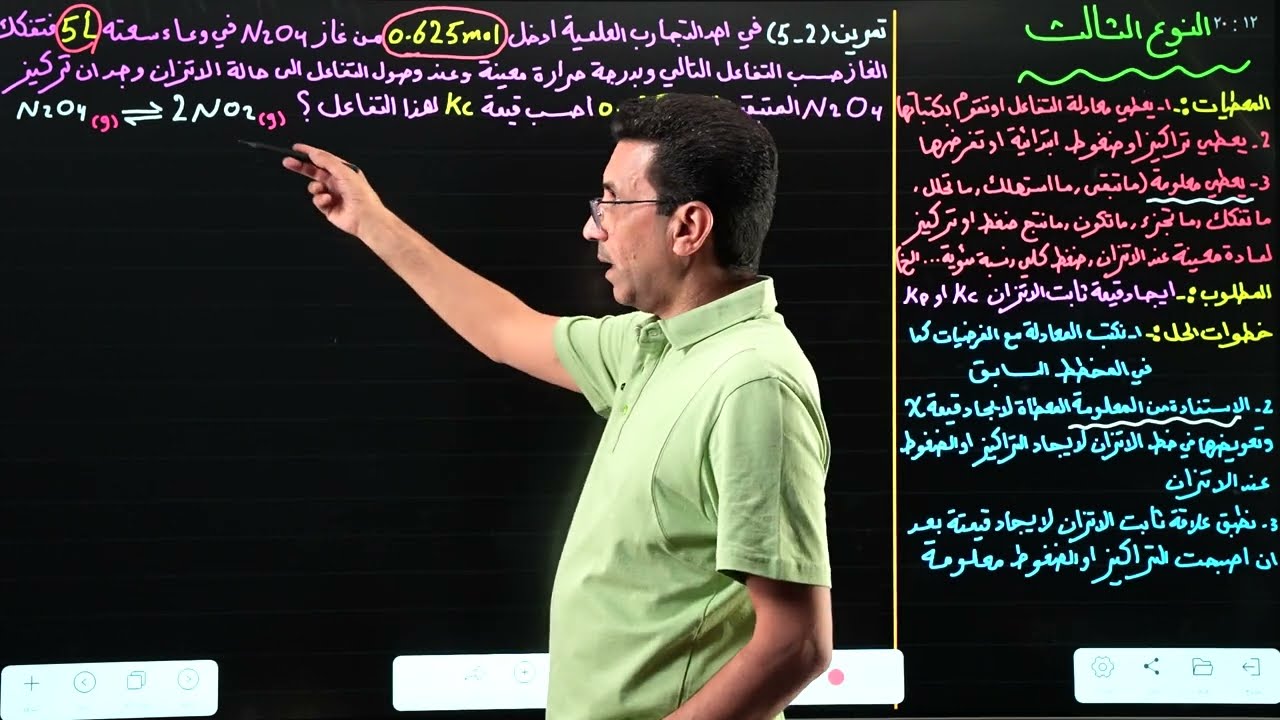 ٢٠:١٢
النوع الثالث
المعطيات :- ١- يعطي معادلة التفاعل او تقوم بكتابتها
2- يعطي تراكيز او ضغوط ابتدائية او تفرضها
3- يعطي معلومة (ما تبقى, ما استهلك, ما تحلل,
ما تفكك, ما تجزء, ما تكون, ما نتج ضغط او تركيز
لمادة معينة عند الاتزان, ضغط كلي, نسبة مئوية... الخ)
المطلوب :- ايجاد قيمة ثابت الاتزان Kc او Kp
خطوات الحل :- ١- نكتب المعادلة مع الفرضيات كما
في المخطط السابق
2- الاستفادة من المعلومة المعطاة لايجاد قيمة x
وتعويضها في خط الاتزان لايجاد التراكيز او الضغوط
عند الاتزان
3- نطبق علاقة ثابت الاتزان لايجاد قيمته بعد
ان اصبحت التراكيز او الضغوط معلومة
تمرين (2-5) في احد التجارب العلمية ادخل 0.625mol من غاز N2O4 في وعاء سعته 5L فتفكك
الغاز حسب التفاعل التالي وبدرجة حرارة معينة وعند وصول التفاعل الى حالة الاتزان وجد ان تركيز
N2O4 احسب قيمة Kc لهذا التفاعل ؟ N2O4(g) ⇌ 2NO2(g)